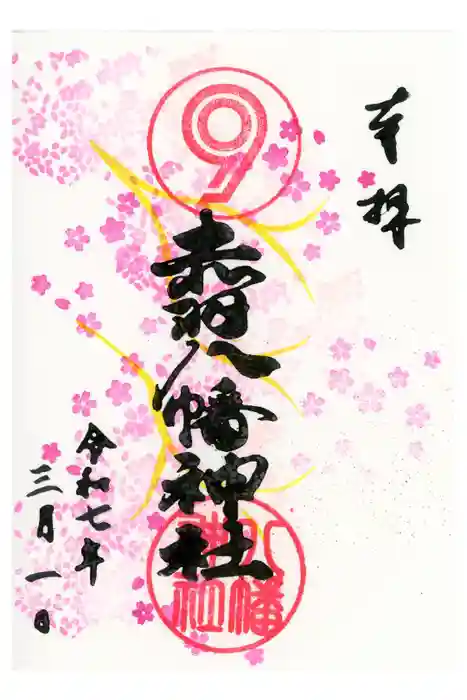 奉拝
9
赤羽八幡神社
八幡
神社
令和七年
三月一日